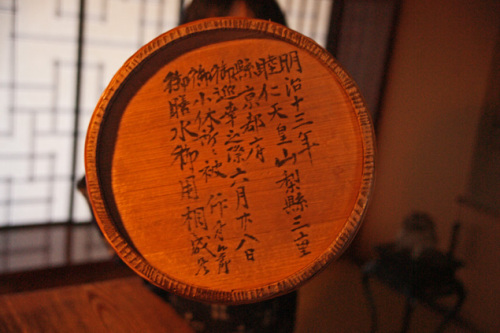 明治十三年
睦仁天皇山梨縣三重
縣京都府
御巡幸之際六月廿八日
御小休所被仰付
御膳水御用相成